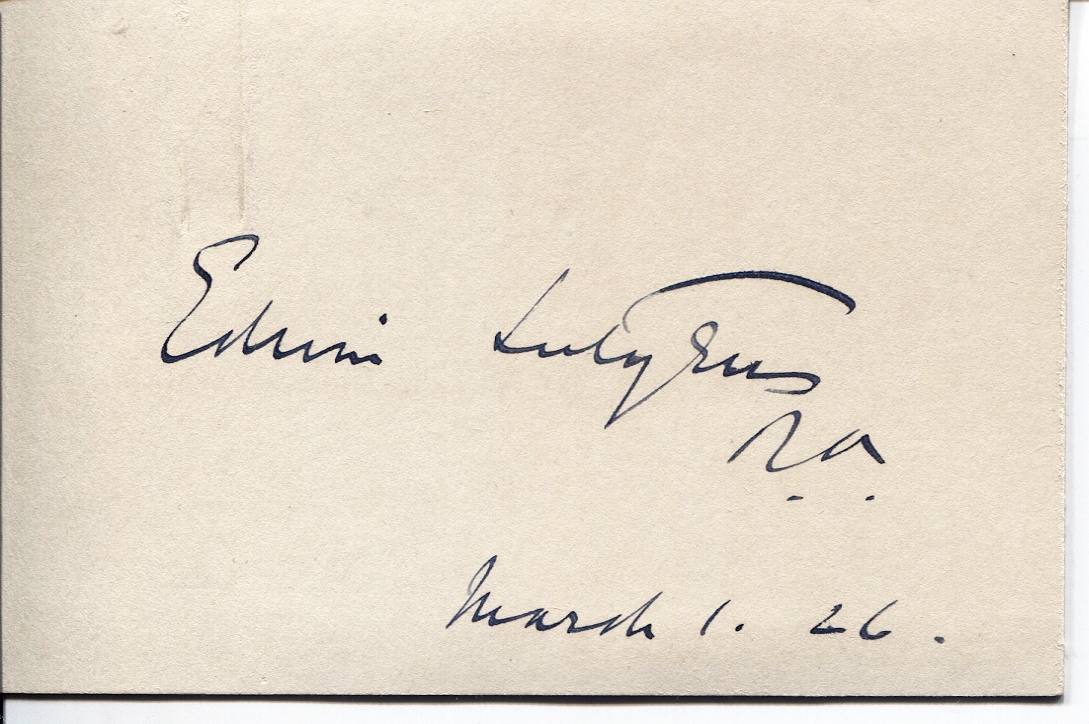 Edwin Lutyens
R.A.
March 1. 26.